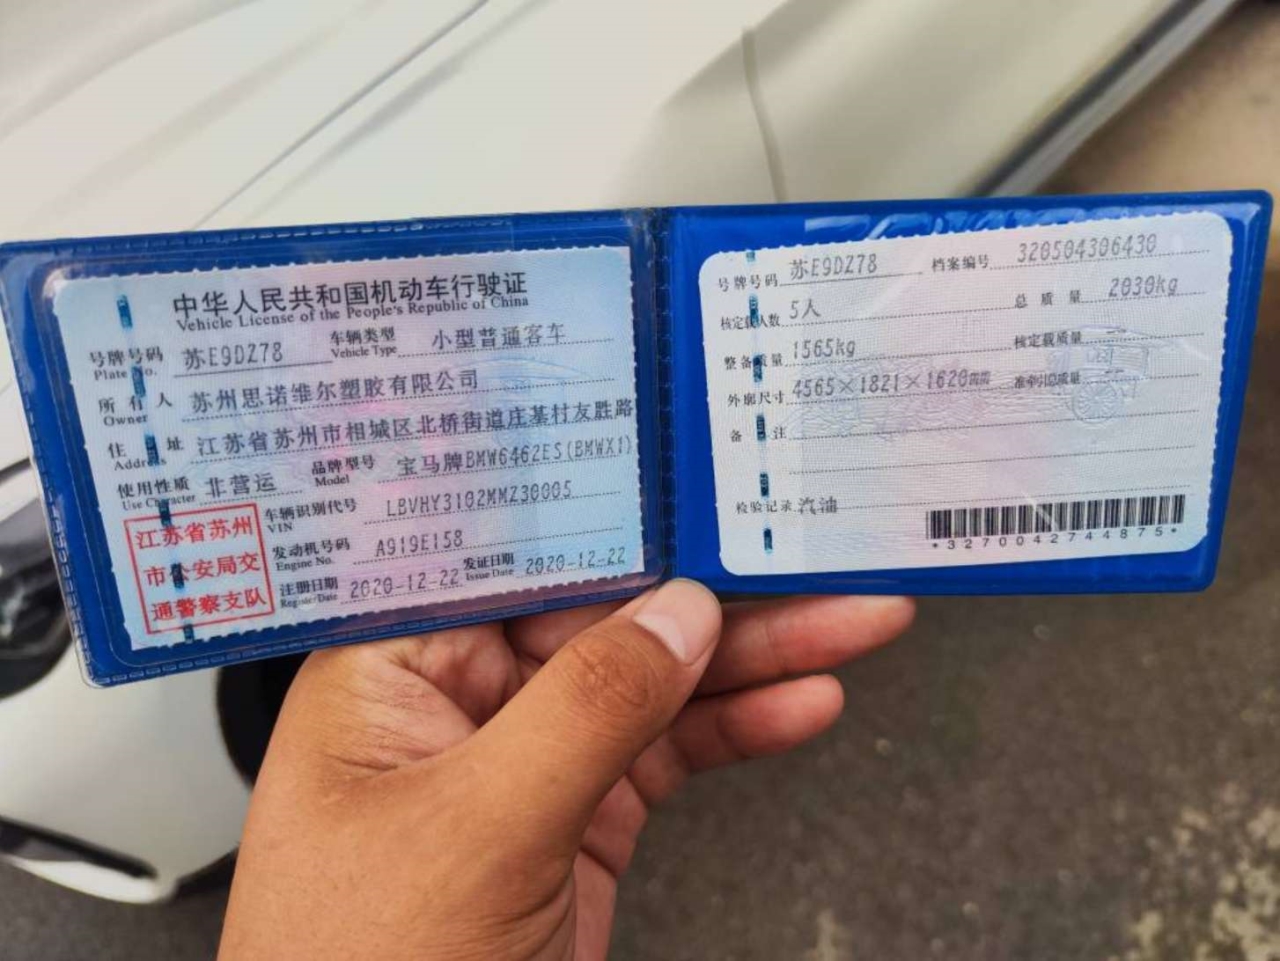 中华人民共和国机动车行驶证
Vehicle License of the People's Republic of China
号牌号码 苏E9DZ78 车辆类型 小型普通客车
Plate No. Vehicle Type
所有人 苏州思诺维尔塑胶有限公司
Owner
住址 江苏省苏州市相城区北桥街道庄基村友胜路
Address
使用性质 非营运 品牌型号 宝马牌BMW6462ES(BMWX1)
Use Character Model
江苏省苏州
市公安局交
通警察支队
车辆识别代号 LBVHY3102MMZ30005
VIN
发动机号码 A919E158
Engine No.
注册日期 2020-12-22 发证日期 2020-12-22
Register Date Issue Date
号牌号码 苏E9DZ78 档案编号 320504306430
核定载人数 5人 总质量 2030kg
整备质量 1565kg 核定载质量
外廓尺寸 4565×1821×1620mm 准牵引总质量
备注
检验记录 汽油
*3270042744875*